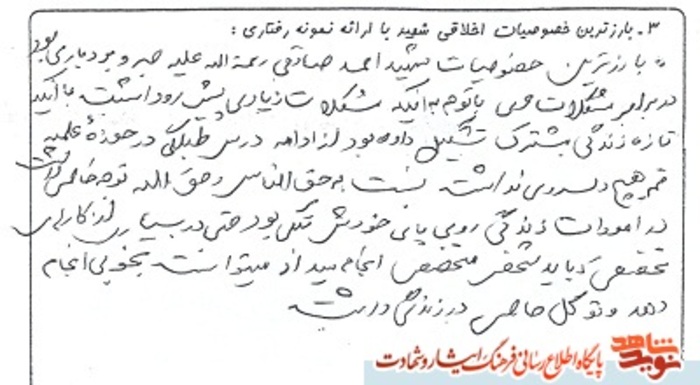 ۳ـ بارزترین خصوصیات اخلاقی شهید با ارائه نمونه رفتاری :
بارزترین خصوصیات شهید احمد صادقی رحمة الله علیه صبر و بردباری بود
در برابر مشکلات باتوجه به اینکه مشکلات زیادی پیش رو داشت با اینکه
تازه زندگی مشترک تشکیل داده بود از ادامه درس طلبگی در حوزهٔ علمیه
قم هیچ دلسردی نداشت نسبت به حق الناس و حق الله توجه خاصی داشت
در امورات زندگی روی پای خودش متکی بود حتی در بسیاری از کارهای
تخصصی که باید شخص متخصص انجام میداد میتوانست بخوبی انجام
دهد و توکل خاصی در زندگی داشت
نوید شاهد
پایگاه اطلاع رسانی فرهنگ ایثار و شهادت